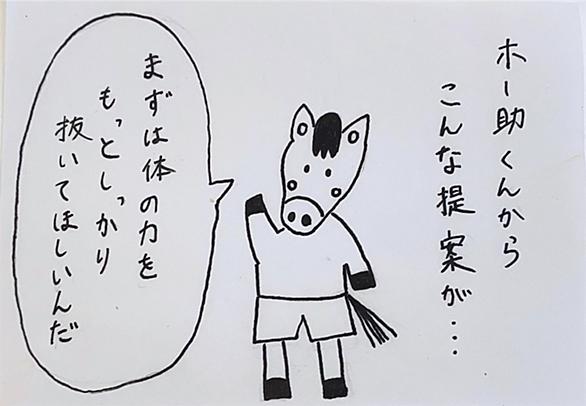 ホー助くんから
こんな提案が・・・
まずは体の力を
もっとしっかり
抜いてほしいんだ